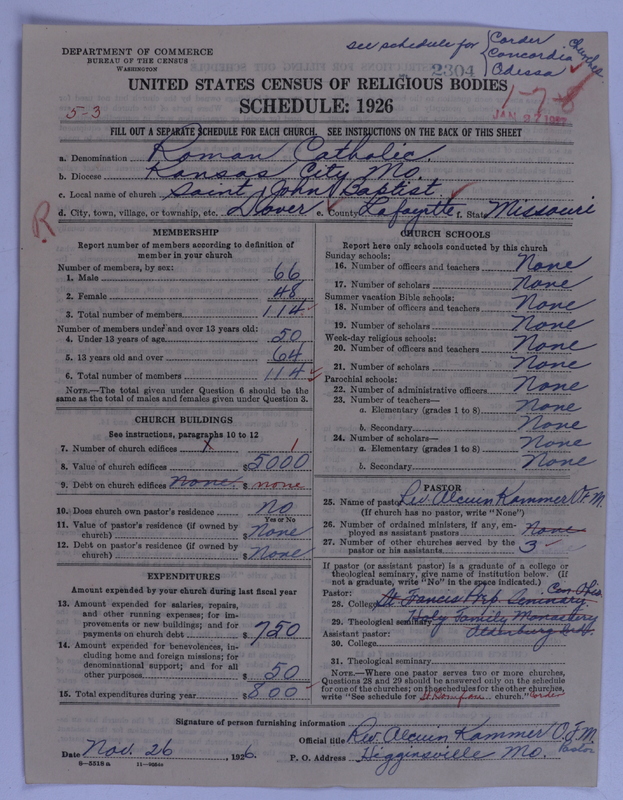 DEPARTMENT OF COMMERCE
BUREAU OF THE CENSUS
WASHINGTON
see schedule for { Corder
Concordia
Odessa
Churches
2304
UNITED STATES CENSUS OF RELIGIOUS BODIES
SCHEDULE: 1926
5-3
1-7-8
JAN 27
FILL OUT A SEPARATE SCHEDULE FOR EACH CHURCH. SEE INSTRUCTIONS ON THE BACK OF THIS SHEET
a. Denomination Roman Catholic.
b. Diocese Kansas City Mo.
c. Local name of church Saint John Baptist
d. City, town, village, or township, etc. Dover e. County Lafayette f. State Missouri
R
MEMBERSHIP
Report number of members according to definition of
member in your church
Number of members, by sex:
1. Male 66
2. Female 48
3. Total number of members 114
Number of members under and over 13 years old:
4. Under 13 years of age 50
5. 13 years old and over 64
6. Total number of members 114
NOTE.—The total given under Question 6 should be the
same as the total of males and females given under Question 3.
CHURCH BUILDINGS
See instructions, paragraphs 10 to 12
7. Number of church edifices X 1
8. Value of church edifices $5000
9. Debt on church edifices none $ none
10. Does church own pastor's residence? No
Yes or No
11. Value of pastor's residence (if owned by
church) $ None
12. Debt on pastor's residence (if owned by
church) $ None
EXPENDITURES
Amount expended by your church during last fiscal year
13. Amount expended for salaries, repairs,
and other running expenses; for im-
provements or new buildings; and for
payments on church debt $ 750
14. Amount expended for benevolences, in-
cluding home and foreign missions; for
denominational support; and for all
other purposes $ 50
15. Total expenditures during year $ 800
CHURCH SCHOOLS
Report here only schools conducted by this church
Sunday schools:
16. Number of officers and teachers None
17. Number of scholars None
Summer vacation Bible schools:
18. Number of officers and teachers None
19. Number of scholars None
Week-day religious schools:
20. Number of officers and teachers None
21. Number of scholars None
Parochial schools:
22. Number of administrative officers None
23. Number of teachers—
a. Elementary (grades 1 to 8) None
b. Secondary None
24. Number of scholars—
a. Elementary (grades 1 to 8) None
b. Secondary None
PASTOR
25. Name of pastor Rev. Alcuin Kammer O.F.M.
(If church has no pastor, write "None")
26. Number of ordained ministers, if any, em-
ployed as assistant pastors None
27. Number of other churches served by the
pastor or his assistants 3
If pastor (or assistant pastor) is a graduate of a college or
theological seminary, give name of institution below. (If
not a graduate, write "No" in the space indicated.)
Pastor:
28. College St Francis Prep. Seminary Cin. Ohio
29. Theological seminary Holy Family Monastery
Oldenburg Ind.
Assistant pastor:
30. College
31. Theological seminary
NOTE.—Where one pastor serves two or more churches,
Questions 28 and 29 should be answered only on the schedule
for one of the churches; on the schedules for the other churches,
write "See schedule for St Boniface church." Corder
Signature of person furnishing information
Official title Rev. Alcuin Kammer O.F.M.
Pastor
Date Nov. 26, 1926. P. O. Address Higginsville Mo.
8—5518 a